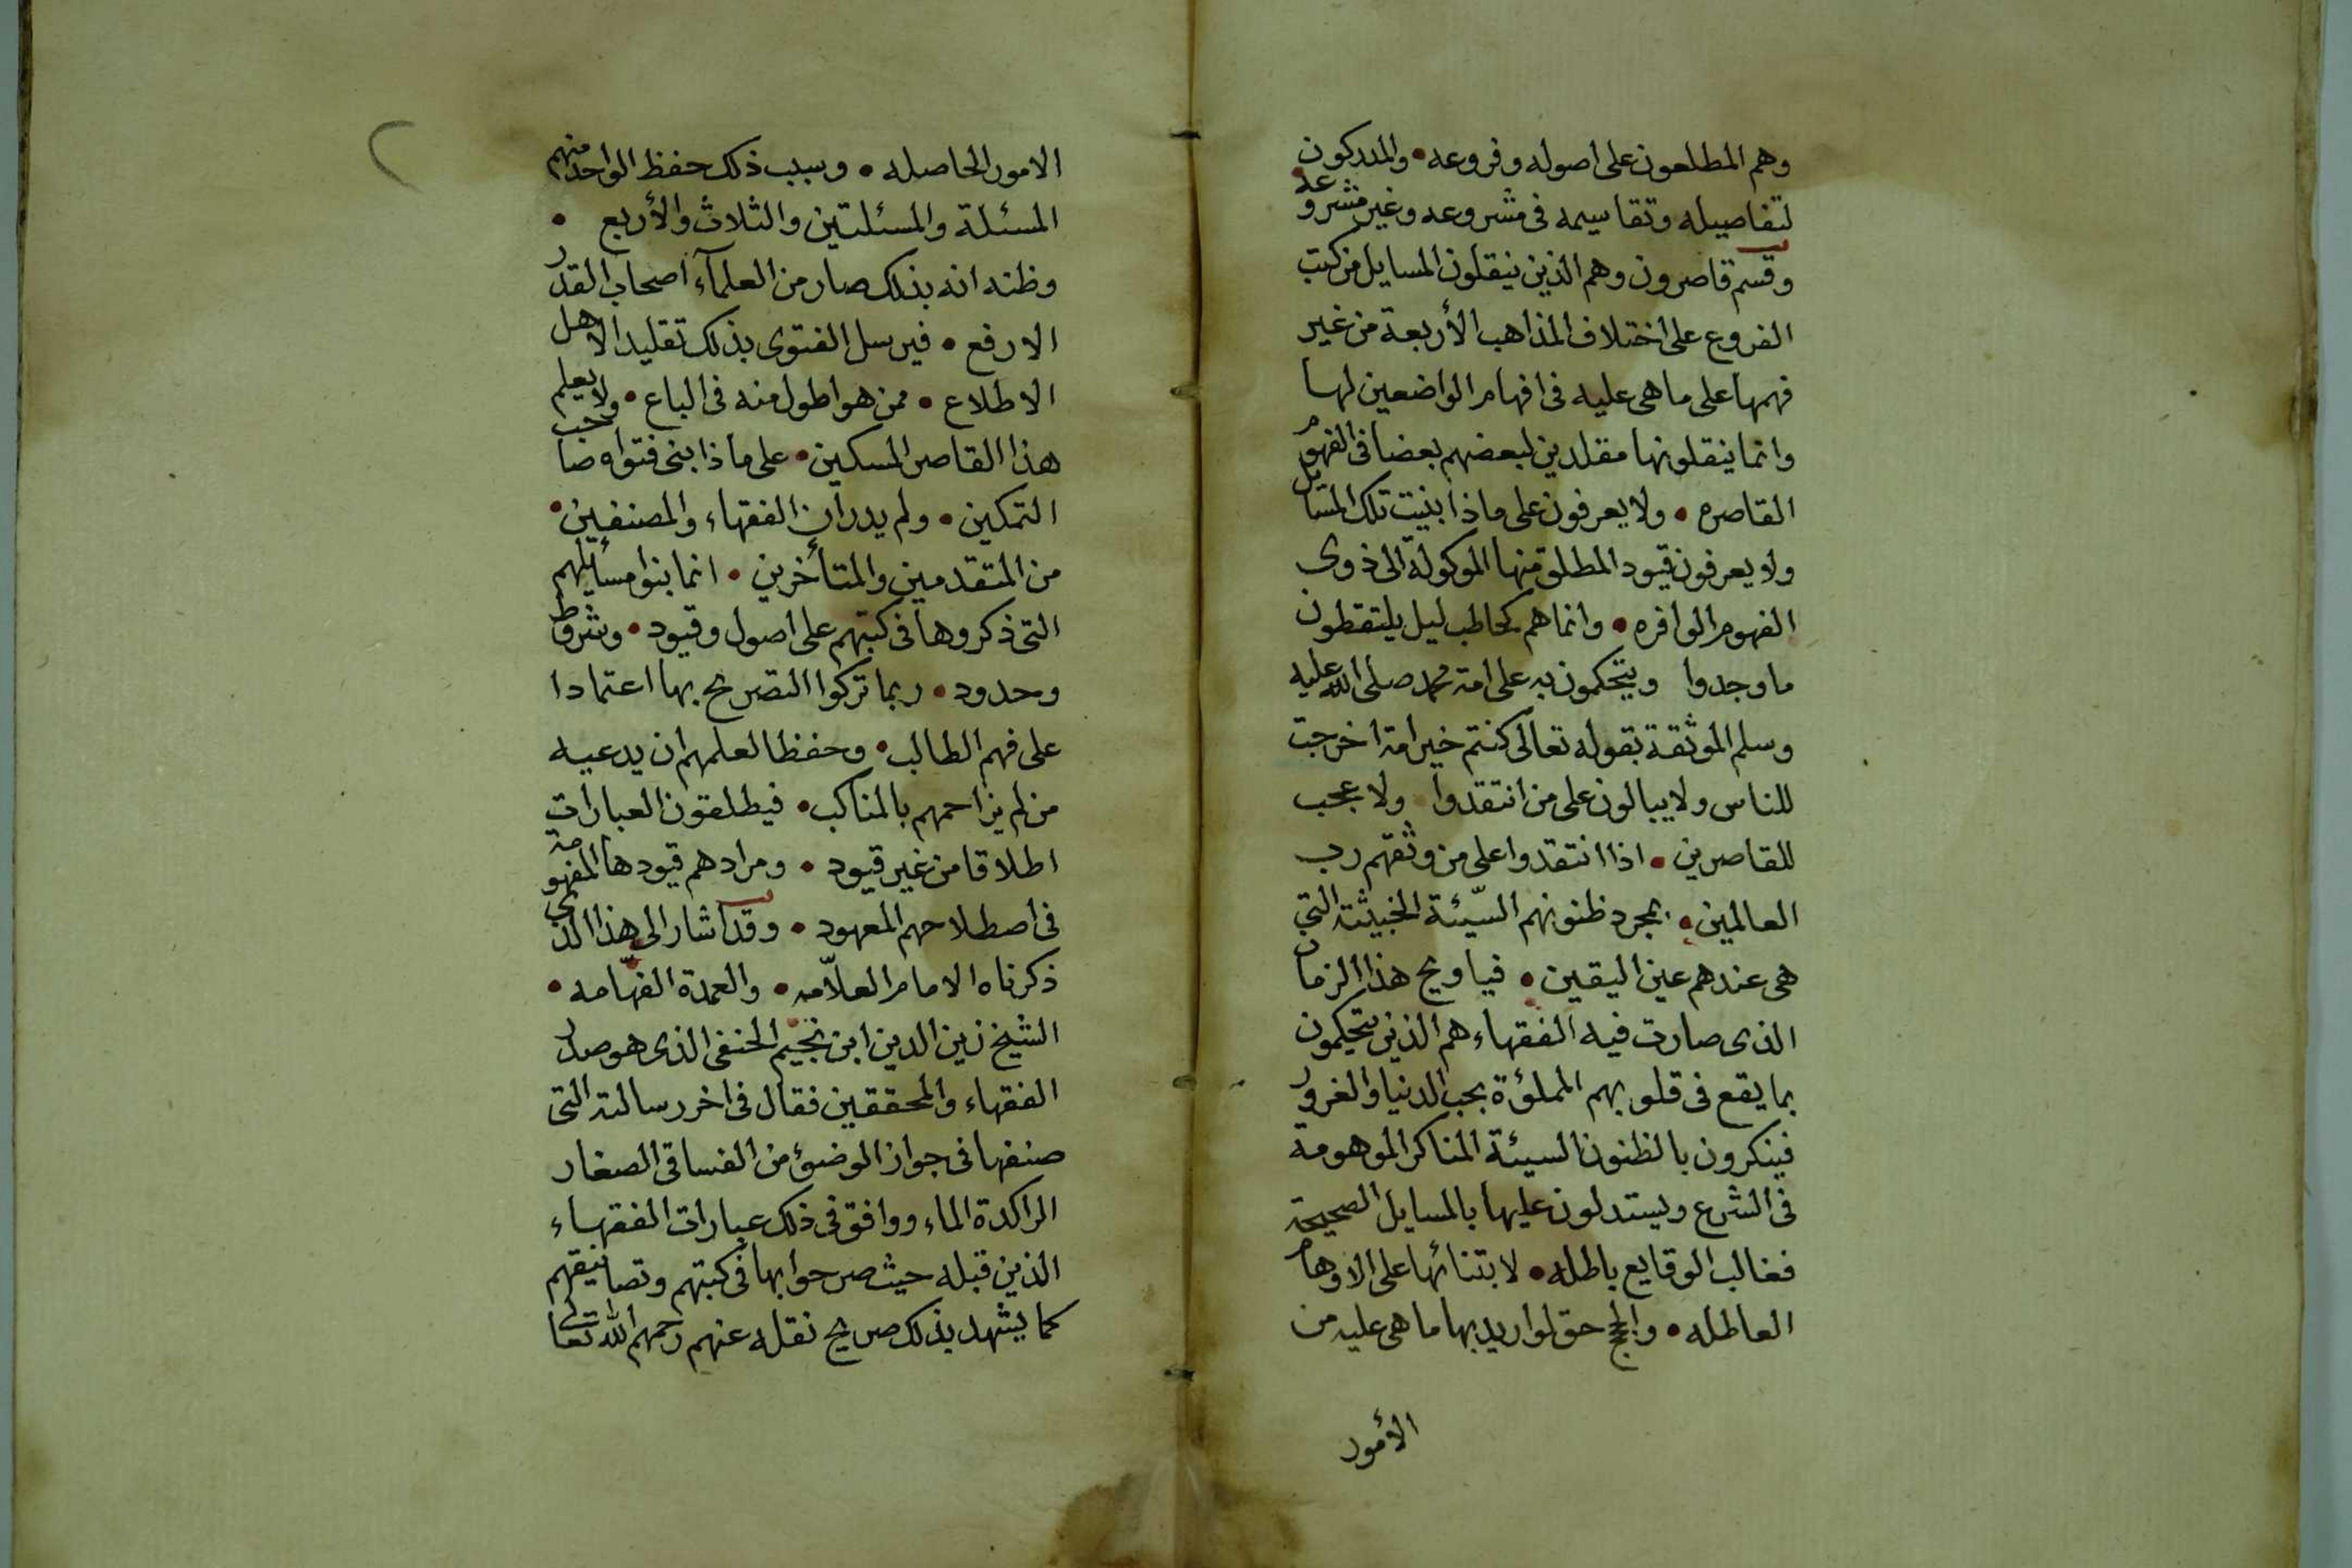 وهم المطلعون على اصوله وفروعه • والمدركون
لتفاصيله وتقاسيمه فى مشروعه وغير مشروعه •
وقسم قاصرون وهم الذين ينقلون المسايل من كتب
الفروع على اختلاف المذاهب الأربعة من غير
فهمها على ما هى عليه فى افهام الواضعين لها
وانما ينقلونها مقلدين لبعضهم بعضا فى الفهوم
القاصره • ولا يعرفون على ماذا بنيت تلك المسايل
ولا يعرفون قيود المطلق منها الموكولة الى ذوى
الفهوم الوافره • وانما هم كحاطب ليل يلتقطون
ما وجدوا ويتحكمون به على امة محمد صلى الله عليه
وسلم الموثقة بقوله تعالى كنتم خير امة اخرجت
للناس ولا يبالون على من انتقدوا ولا عجب
للقاصرين • اذا انتقدوا على من وثقهم رب
العالمين • بمجرد ظنونهم السّيئة الخبيثة التي
هى عندهم عين اليقين • فيا ويح هذا الزمان
الذى صارت فيه الفقهاء هم الذين يتحكمون
بما يقع فى قلوبهم المملؤة بحب الدنيا والغرور
فينكرون بالظنون السيئة المناكر الموهومة
فى الشرع ويستدلون عليها بالمسايل الصحيحة
فغالب الوقايع باطله • لابتنائها على الاوهام
العاطله • والحجج حق لو اريد بها ما هى عليه من
الأمور
الامور الحاصله • وسبب ذلك حفظ الواحد منهم
المسئلة والمسئلتين والثلاث والأربع •
وظنه انه بذلك صار من العلمآء اصحاب القدر
الارفع • فيرسل الفتوى بذلك تقليدا لاهل
الاطلاع • ممن هو اطول منه فى الباع • ولا يعلم
هذا القاصر المسكين • على ماذا بنى فتواه صاحب
التمكين • ولم يدر ان الفقهاء والمصنفين •
من المتقدمين والمتأخرين • انما بنوا مسائلهم
التى ذكروها فى كتبهم على اصول وقيود • وشروط
وحدود • ربما تركوا التصريح بها اعتمادا
على فهم الطالب • وحفظا لعلمهم ان يدعيه
من لم يزاحمهم بالمناكب • فيطلقون العبارات
اطلاقا من غير قيود • ومرادهم قيودها المفهومة
فى اصطلاحهم المعهود • وقد اشار الى هذا الذى
ذكرناه الامام العلاّمه • والعمدة الفهّامه •
الشيخ زين الدين ابن نجيم الحنفى الذى هو صدر
الفقهاء والمحققين فقال فى اخر رسالته التى
صنفها فى جواز الوضوء من الفساقى الصغار
الراكدة الماء ووافق فى ذلك عبارات الفقهاء
الذين قبله حيث صرحوا بها فى كتبهم وتصانيفهم
كما يشهد بذلك صريح نقله عنهم رحمهم الله تعالى